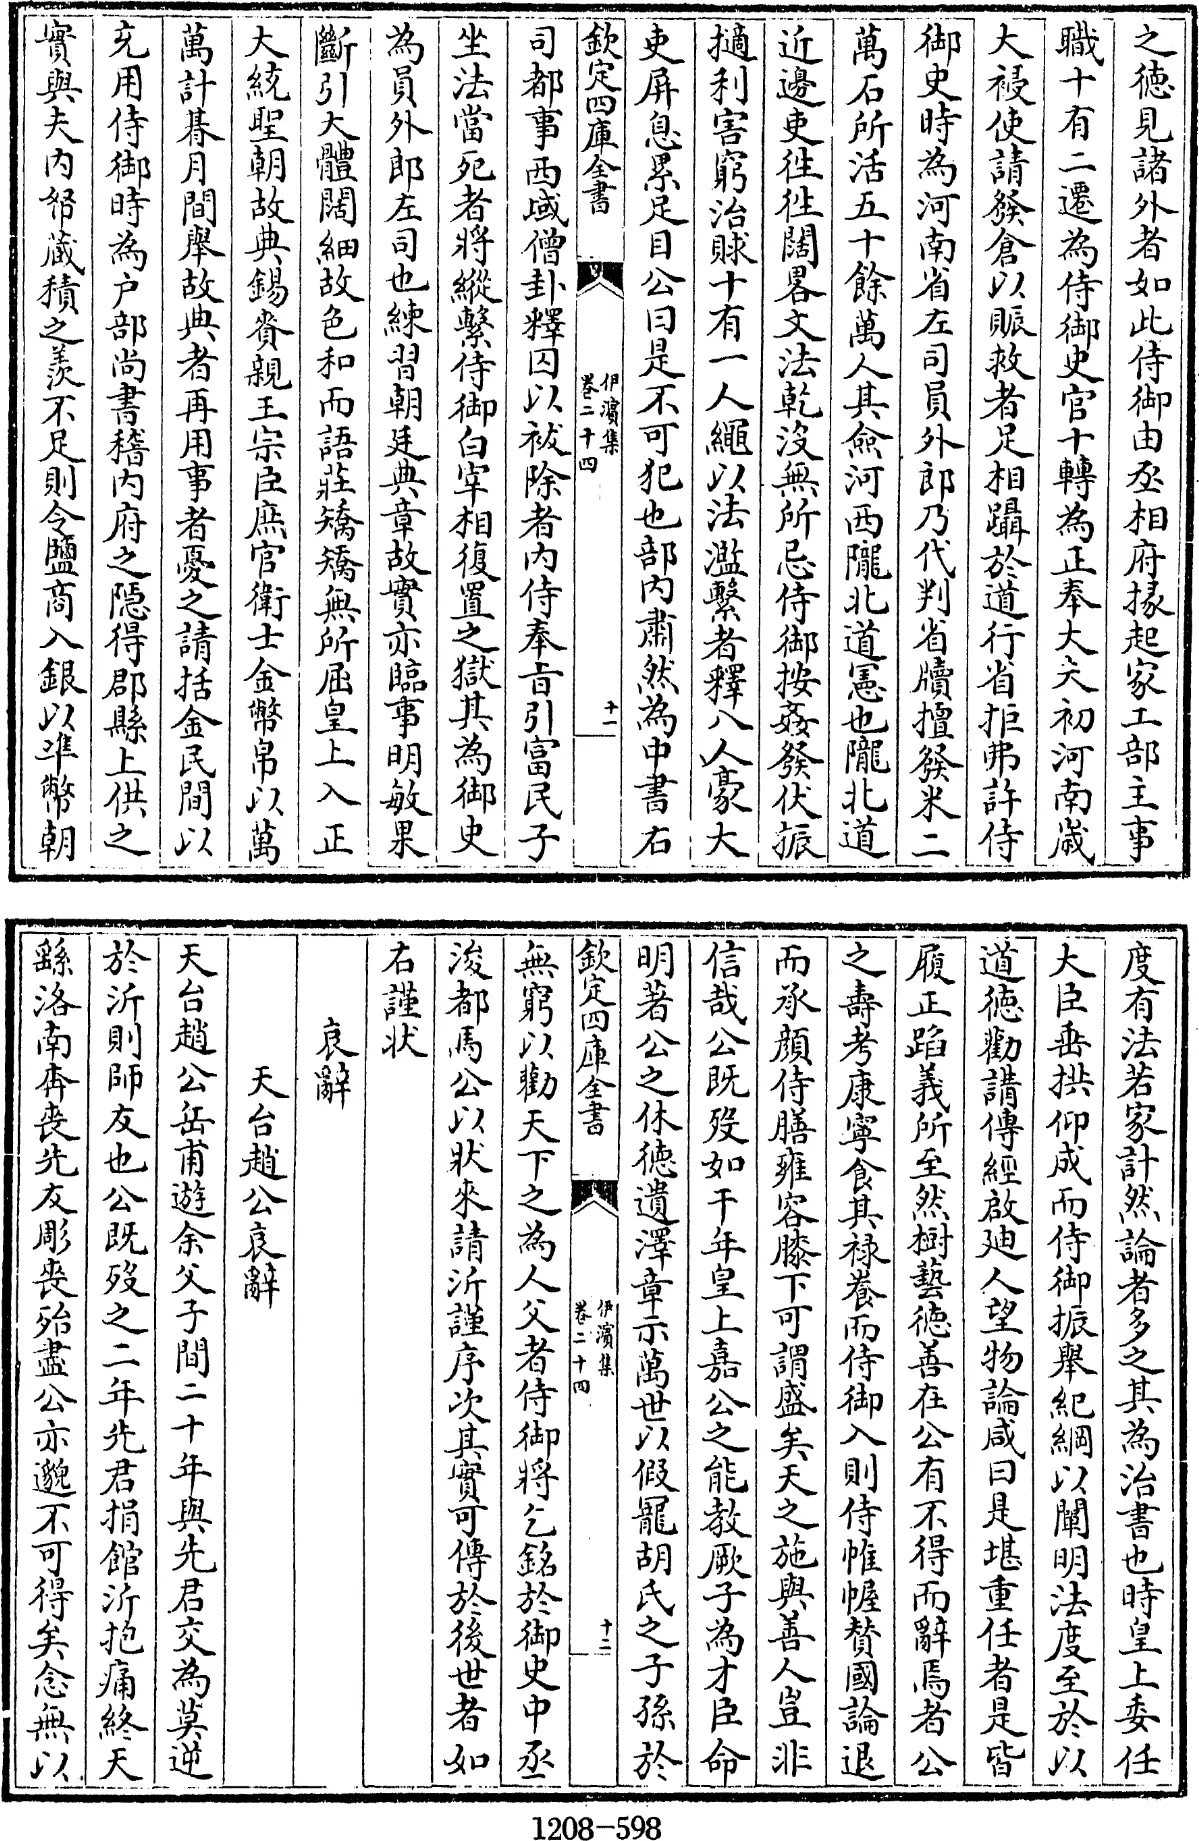 之徳見諸外者如此侍御由丞相府掾起家工部主事
職十有二遷為侍御史官十轉為正奉大夫初河南嵗
大祲使請發倉以賑救者足相躡於道行省拒弗許侍
御史時為河南省左司員外郎乃代判省牘擅發米二
萬石所活五十餘萬人其僉河西隴北道憲也隴北道
近邊吏徃徃闊畧文法乾沒無所忌侍御按姦發伏振
擿利害窮治賕十有一人繩以法濫繫者釋八人豪大
吏屏息累足目公曰是不可犯也部内肅然為中書右
欽定四庫全書
伊濱集
卷二十四
十一
司都事西域僧卦釋囚以祓除者内侍奉㫖引富民子
坐法當死者將縱繫侍御白宰相復置之獄其為御史
為員外郎左司也練習朝廷典章故實亦臨事明敏果
斷引大體闊細故色和而語莊矯矯無所屈皇上入正
大統聖朝故典錫賚親王宗臣庶官衛士金幣帛以萬
萬計朞月間舉故典者再用事者憂之請括金民間以
充用侍御時為户部尚書稽内府之隠得郡縣上供之
實與夫内帑藏積之羨不足則令鹽商入銀以凖幣朝
度有法若家計然論者多之其為治書也時皇上委任
大臣垂拱仰成而侍御振舉紀綱以闡明法度至於以
道徳勸講傳經啟廸人望物論咸曰是堪重任者是皆
履正蹈義所至然樹藝徳善在公有不得而辭焉者公
之壽考康寧食其禄養而侍御入則侍帷幄賛國論退
而承顔侍膳雍容膝下可謂盛矣天之施與善人豈非
信哉公既殁如干年皇上嘉公之能教厥子為才臣命
明著公之休徳遺澤章示萬世以假寵胡氏之子孫於
欽定四庫全書
伊濱集
卷二十四
十二
無窮以勸天下之為人父者侍御將乞銘於御史中丞
浚都馬公以狀來請沂謹序次其實可傳於後世者如
右謹状
哀辭
天台趙公哀辭
天台趙公岳甫遊余父子間二十年與先君交為莫逆
於沂則師友也公既殁之二年先君捐館沂抱痛終天
繇洛南奔喪先友彫喪殆盡公亦邈不可得矣念無以
1208-598